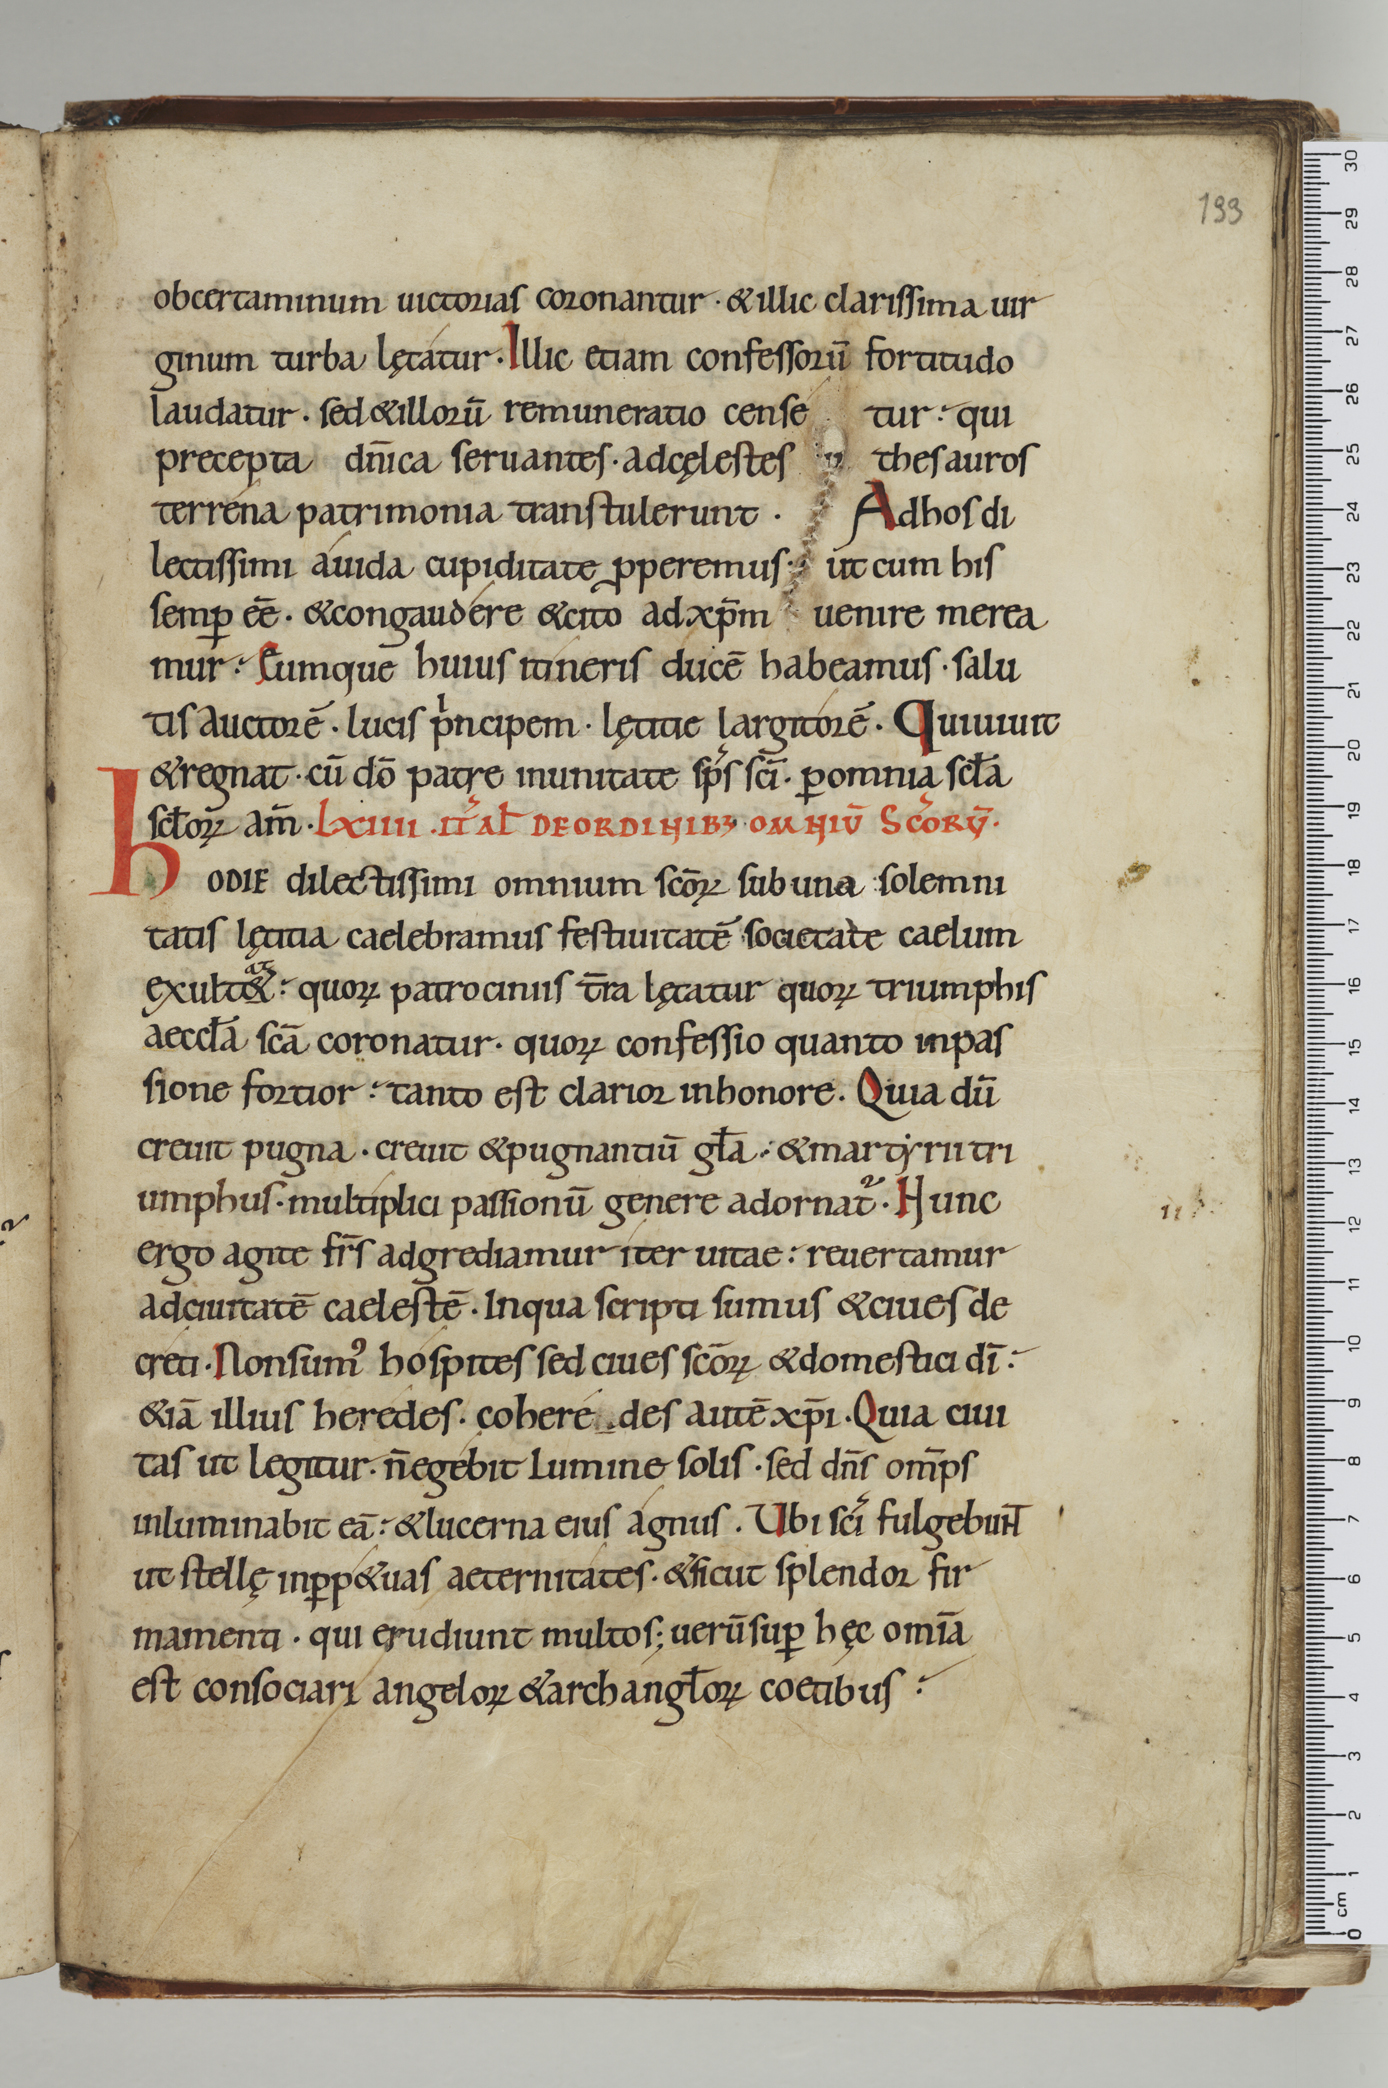 193
obcertaminum uictorias coronantur · & illic clarissima uir
ginum turba lętatur · Illic etiam confessorū fortitudo
laudatur · sed & illorū remuneratio cense tur : qui
precepta dn̄ica seruantes · adcęlestes thesauros
terrena patrimonia transtulerunt · Adhos di
lectissimi auida cupiditate ꝓperemus : ut cum his
semꝑ eē · & congaudere & cito ad xp̄m uenire merea
mur : Eumque huius itineris ducē habeamus · salu
tis auctorē · lucis pͥncipem · lętitie largitorē · Quiuiuit
& regnat · cū dō patre inunitate sp̄s sc̄i · ꝑomnia scła
scłoꝝ am̄ · LXIIII · ITAŁ DEORDINIBꝫ OMNIŪ SC̄ORꝜ ·
HODIE dilectissimi omnium sc̄oꝝ sub una solemni
tatis lętitia caelebramus festiuitatē societate caelum
exult&at : quoꝝ patrociniis t̄ra lętatur quoꝝ triumphis
aeccła sc̄a coronatur · quoꝝ confessio quanto inpas
sione fortior : tanto est clarior inhonore · Quia dū
creuit pugna · creuit & pugnantiū gła : & martyrii tri
umphus · multiplici passionū genere adornat᷑ · Hunc
ergo agite fr̄s adgrediamur iter uitae : reuertamur
adciuitatē caelestē · Inqua scripti sumus & ciues de
creti · Nonsumꝰ hospites sed ciues sc̄oꝝ & domestici dī :
& iā illius heredes · cohere des autē xp̄i · Quia ciui
tas ut legitur · n̄egebit lumine solis · sed dn̄s om̄ps
inluminabit eā : & lucerna eius agnus · Ubi sc̄i fulgebunt
ut stellę inꝑp&uas aeternitates · & sicut splendor fir
mamenti · qui erudiunt multos ; uerūsuꝑ hęc om̄ia
est consociari angeloꝝ & archangłoꝝ coetibus :
30
29
28
27
26
25
24
23
22
21
20
19
18
17
16
15
14
13
12
11
10
9
8
7
6
5
4
3
2
1
cm
0